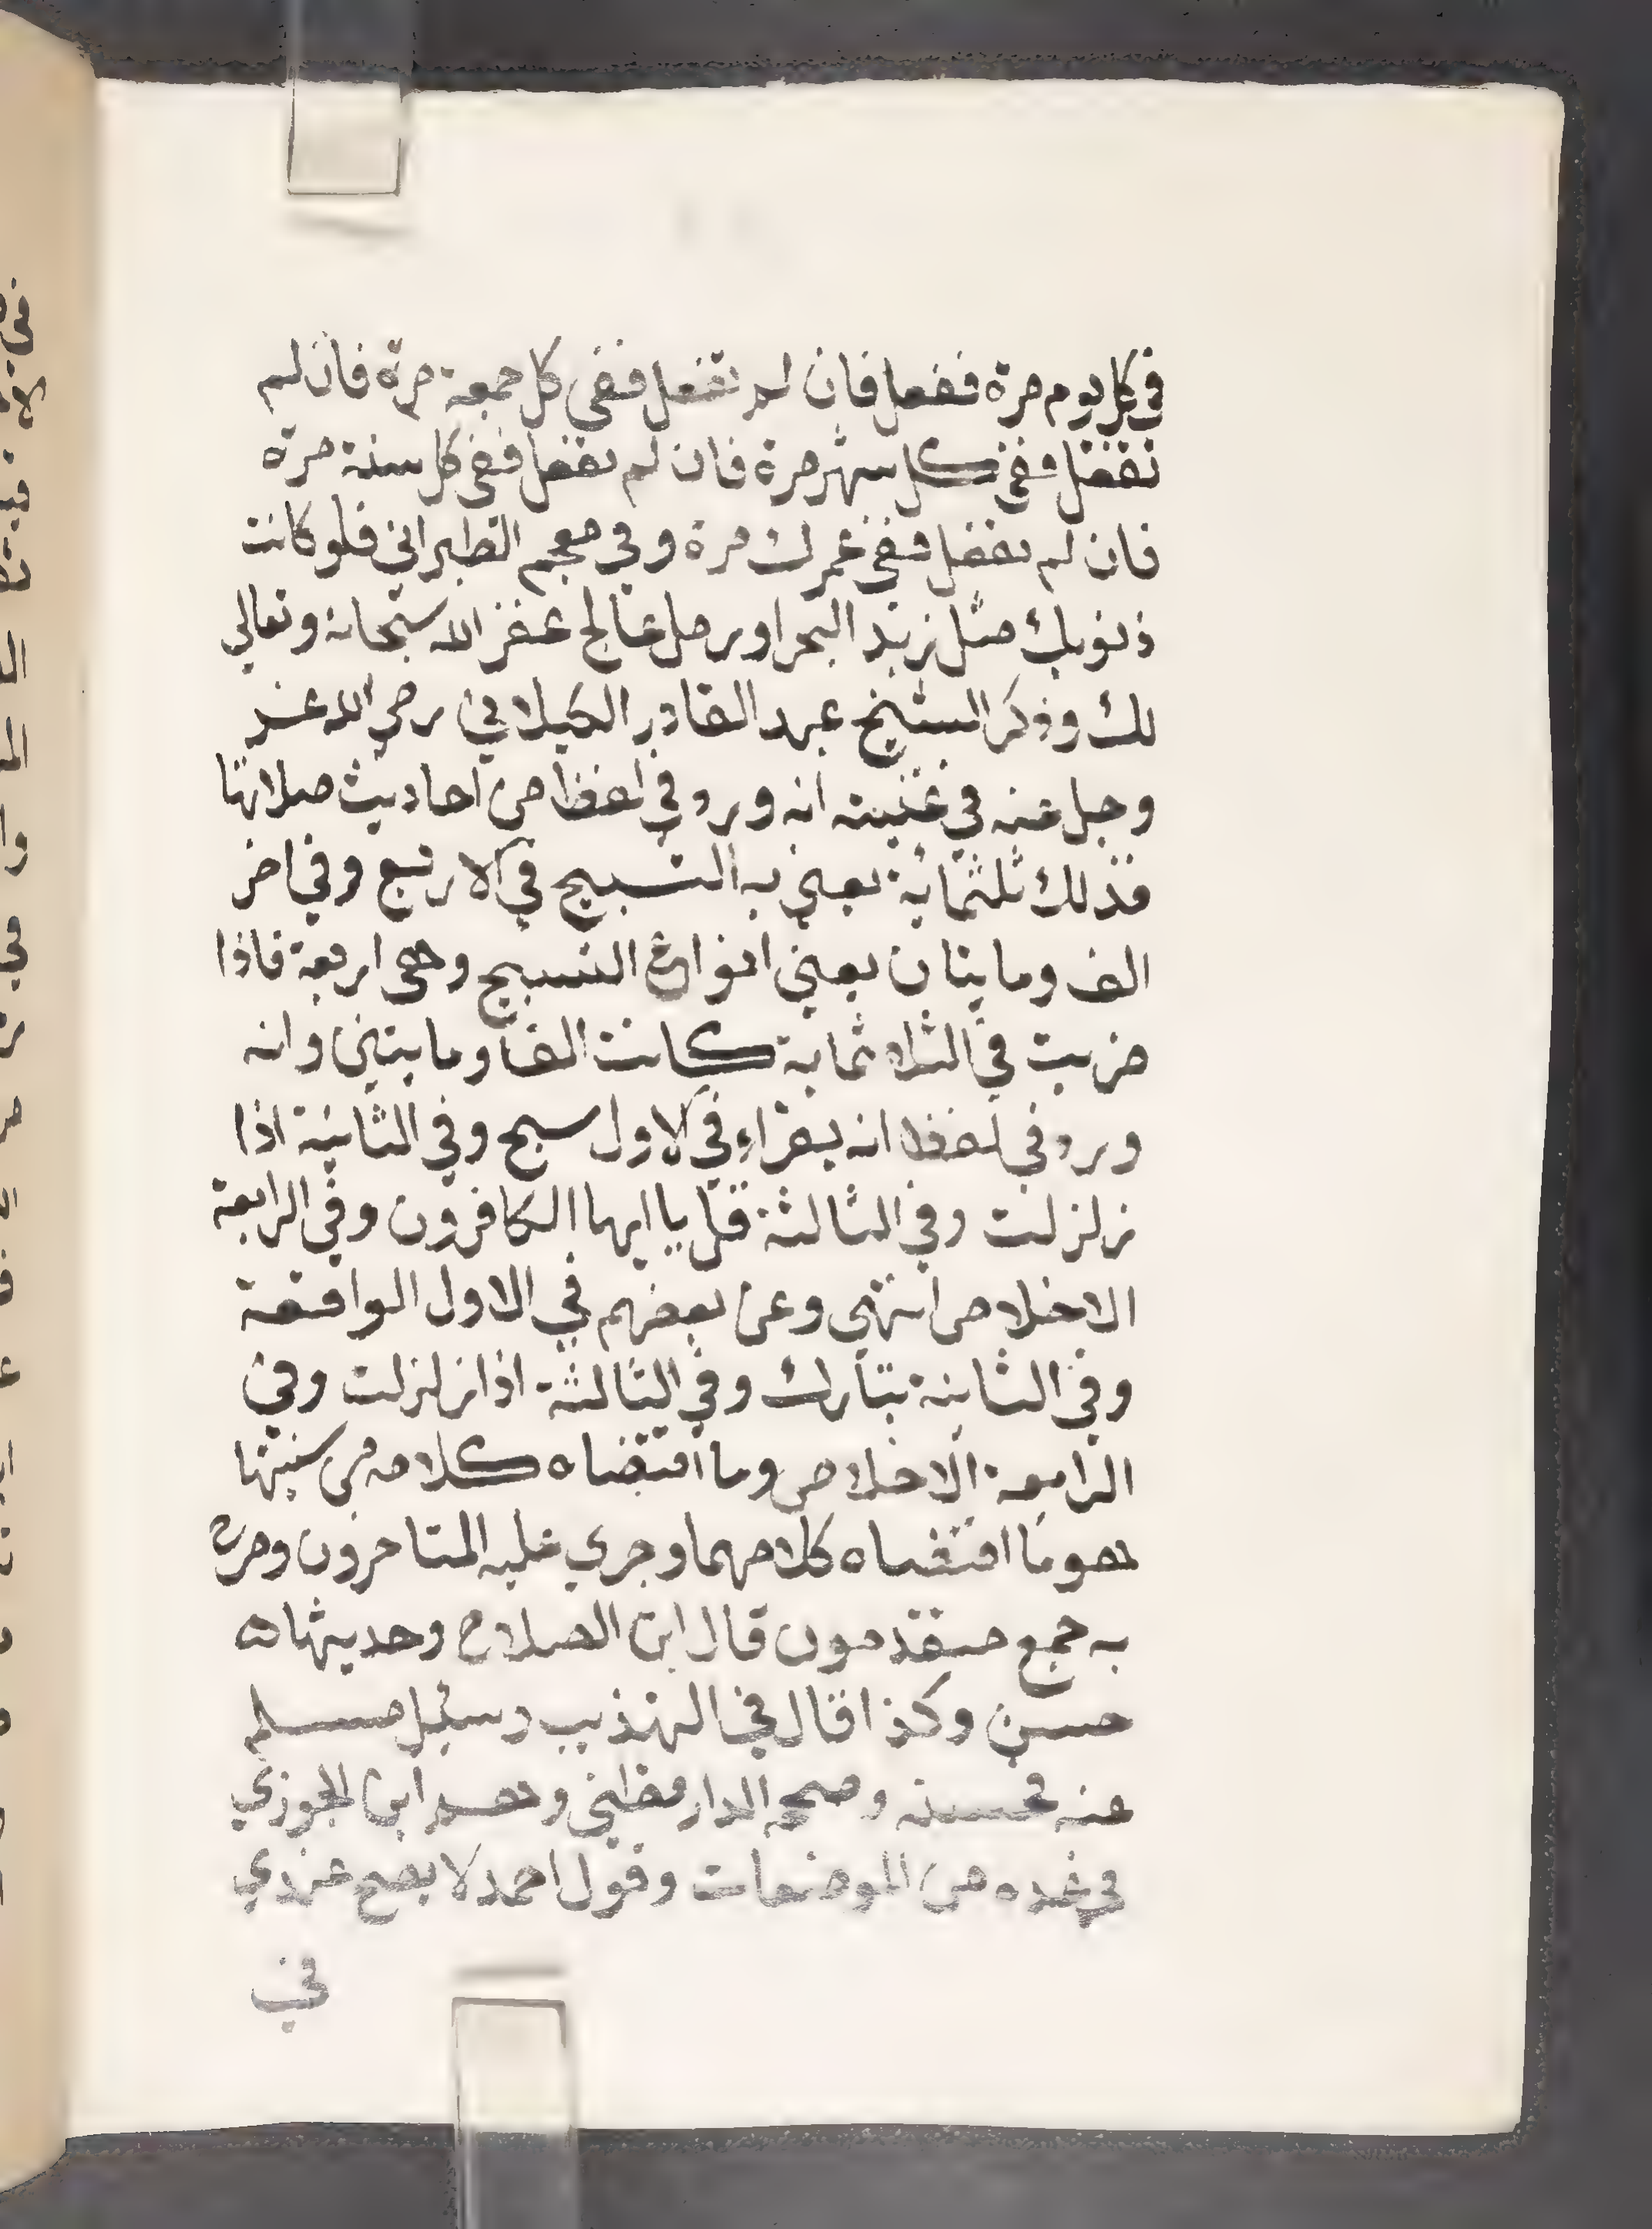 في كل يوم مرة ففعل فان لم تفعل ففي كل جمعة مرة فان لم
تفعل ففي كل شهر مرة فان لم تفعل ففي كل سنة مرة
فان لم تفعل ففي عمرك مرة وفي معجم الطبراني فلو كانت
ذنوبك مثل زبد البحر او رمل عالج غفر الله سبحانه وتعالي
لك وذكر الشيخ عبد القادر الكيلاني رضي الله عنه
وجل عنه في غنيته انه ورد في لفظ من احاديث صلاتها
فذلك ثلثماية يعني به التسبيح في الاربع وفي اخر
الف ومايتان يعني انواع التسبيح وهي اربعة فاذا
ضربت في الثلاثماية كانت الفا ومايتين وانه
ورد في لفظ انه يقراء في الاول سبح وفي الثانية اذا
زلزلت وفي الثالثة قل يا ايها الكافرون وفي الرابعة
الاخلاص انتهي وعن بعضهم في الاول الواقعة
وفي الثانية تبارك وفي الثالثة اذا زلزلت وفي
الرابعة الاخلاص وما اقتضاه كلامه من سنيتها
هو ما اقتضاه كلامهما وجري عليه المتاخرون وصرح
به جمع متقدمون قال ابن الصلاح وحديثها
حسن وكذا قال في التهذيب وسئل مسلم
عنه فحسنه وصححه الدارقطني وهم ابن الجوزي
في عده من الموضعات وقول احمد لا يصح عندي
في